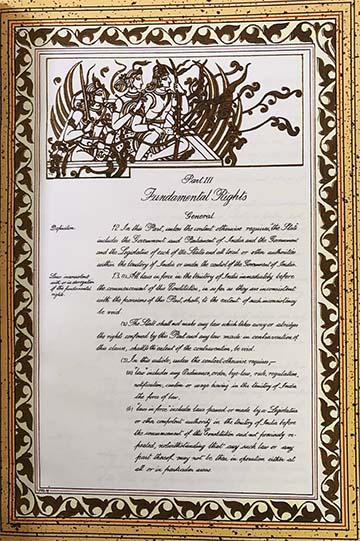 Part III
Fundamental Rights
General
Definition.
12. In this Part, unless the context otherwise requires, "the State"
includes the Government and Parliament of India and the Government
and the Legislature of each of the States and all local or other authorities
within the territory of India or under the control of the Government of India.
Laws inconsistent
with or in derogation
of the fundamental
rights.
13. (1) All laws in force in the territory of India immediately before
the commencement of this Constitution, in so far as they are inconsistent
with the provisions of this Part, shall, to the extent of such inconsistency,
be void.
(2) The State shall not make any law which takes away or abridges
the rights conferred by this Part and any law made in contravention of
this clause, shall, to the extent of the contravention, be void.
(3) In this article, unless the context otherwise requires,—
(a) "law" includes any Ordinance, order, bye-law, rule, regulation,
notification, custom or usage having in the territory of India
the force of law;
(b) "laws in force" includes laws passed or made by a Legislature
or other competent authority in the territory of India before
the commencement of this Constitution and not previously re-
pealed, notwithstanding that any such law or any
part thereof may not be then in operation either at
all or in particular areas.